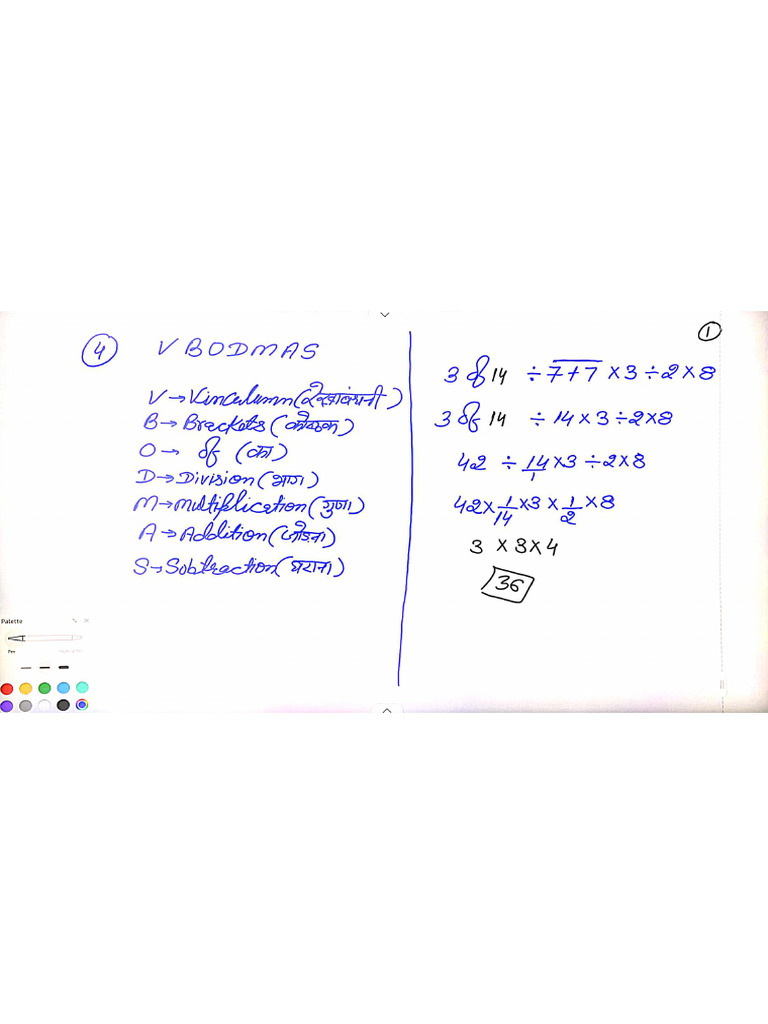 4 VBODMAS
V → Vinculumn (रेखाबंधनी)
B → Brackets (कोष्ठक)
O → of (का)
D → Division (भाग)
M → multiplication (गुणा)
A → Addition (जोड़ना)
S → Sobtraction (घटाना)
1
3 of 14 ÷ 7+7 × 3 ÷ 2 × 8
3 of 14 ÷ 14 × 3 ÷ 2 × 8
42 ÷ 14/1 × 3 ÷ 2 × 8
42 × 1/14 × 3 × 1/2 × 8
3 × 3 × 4
36
Palette
Pen